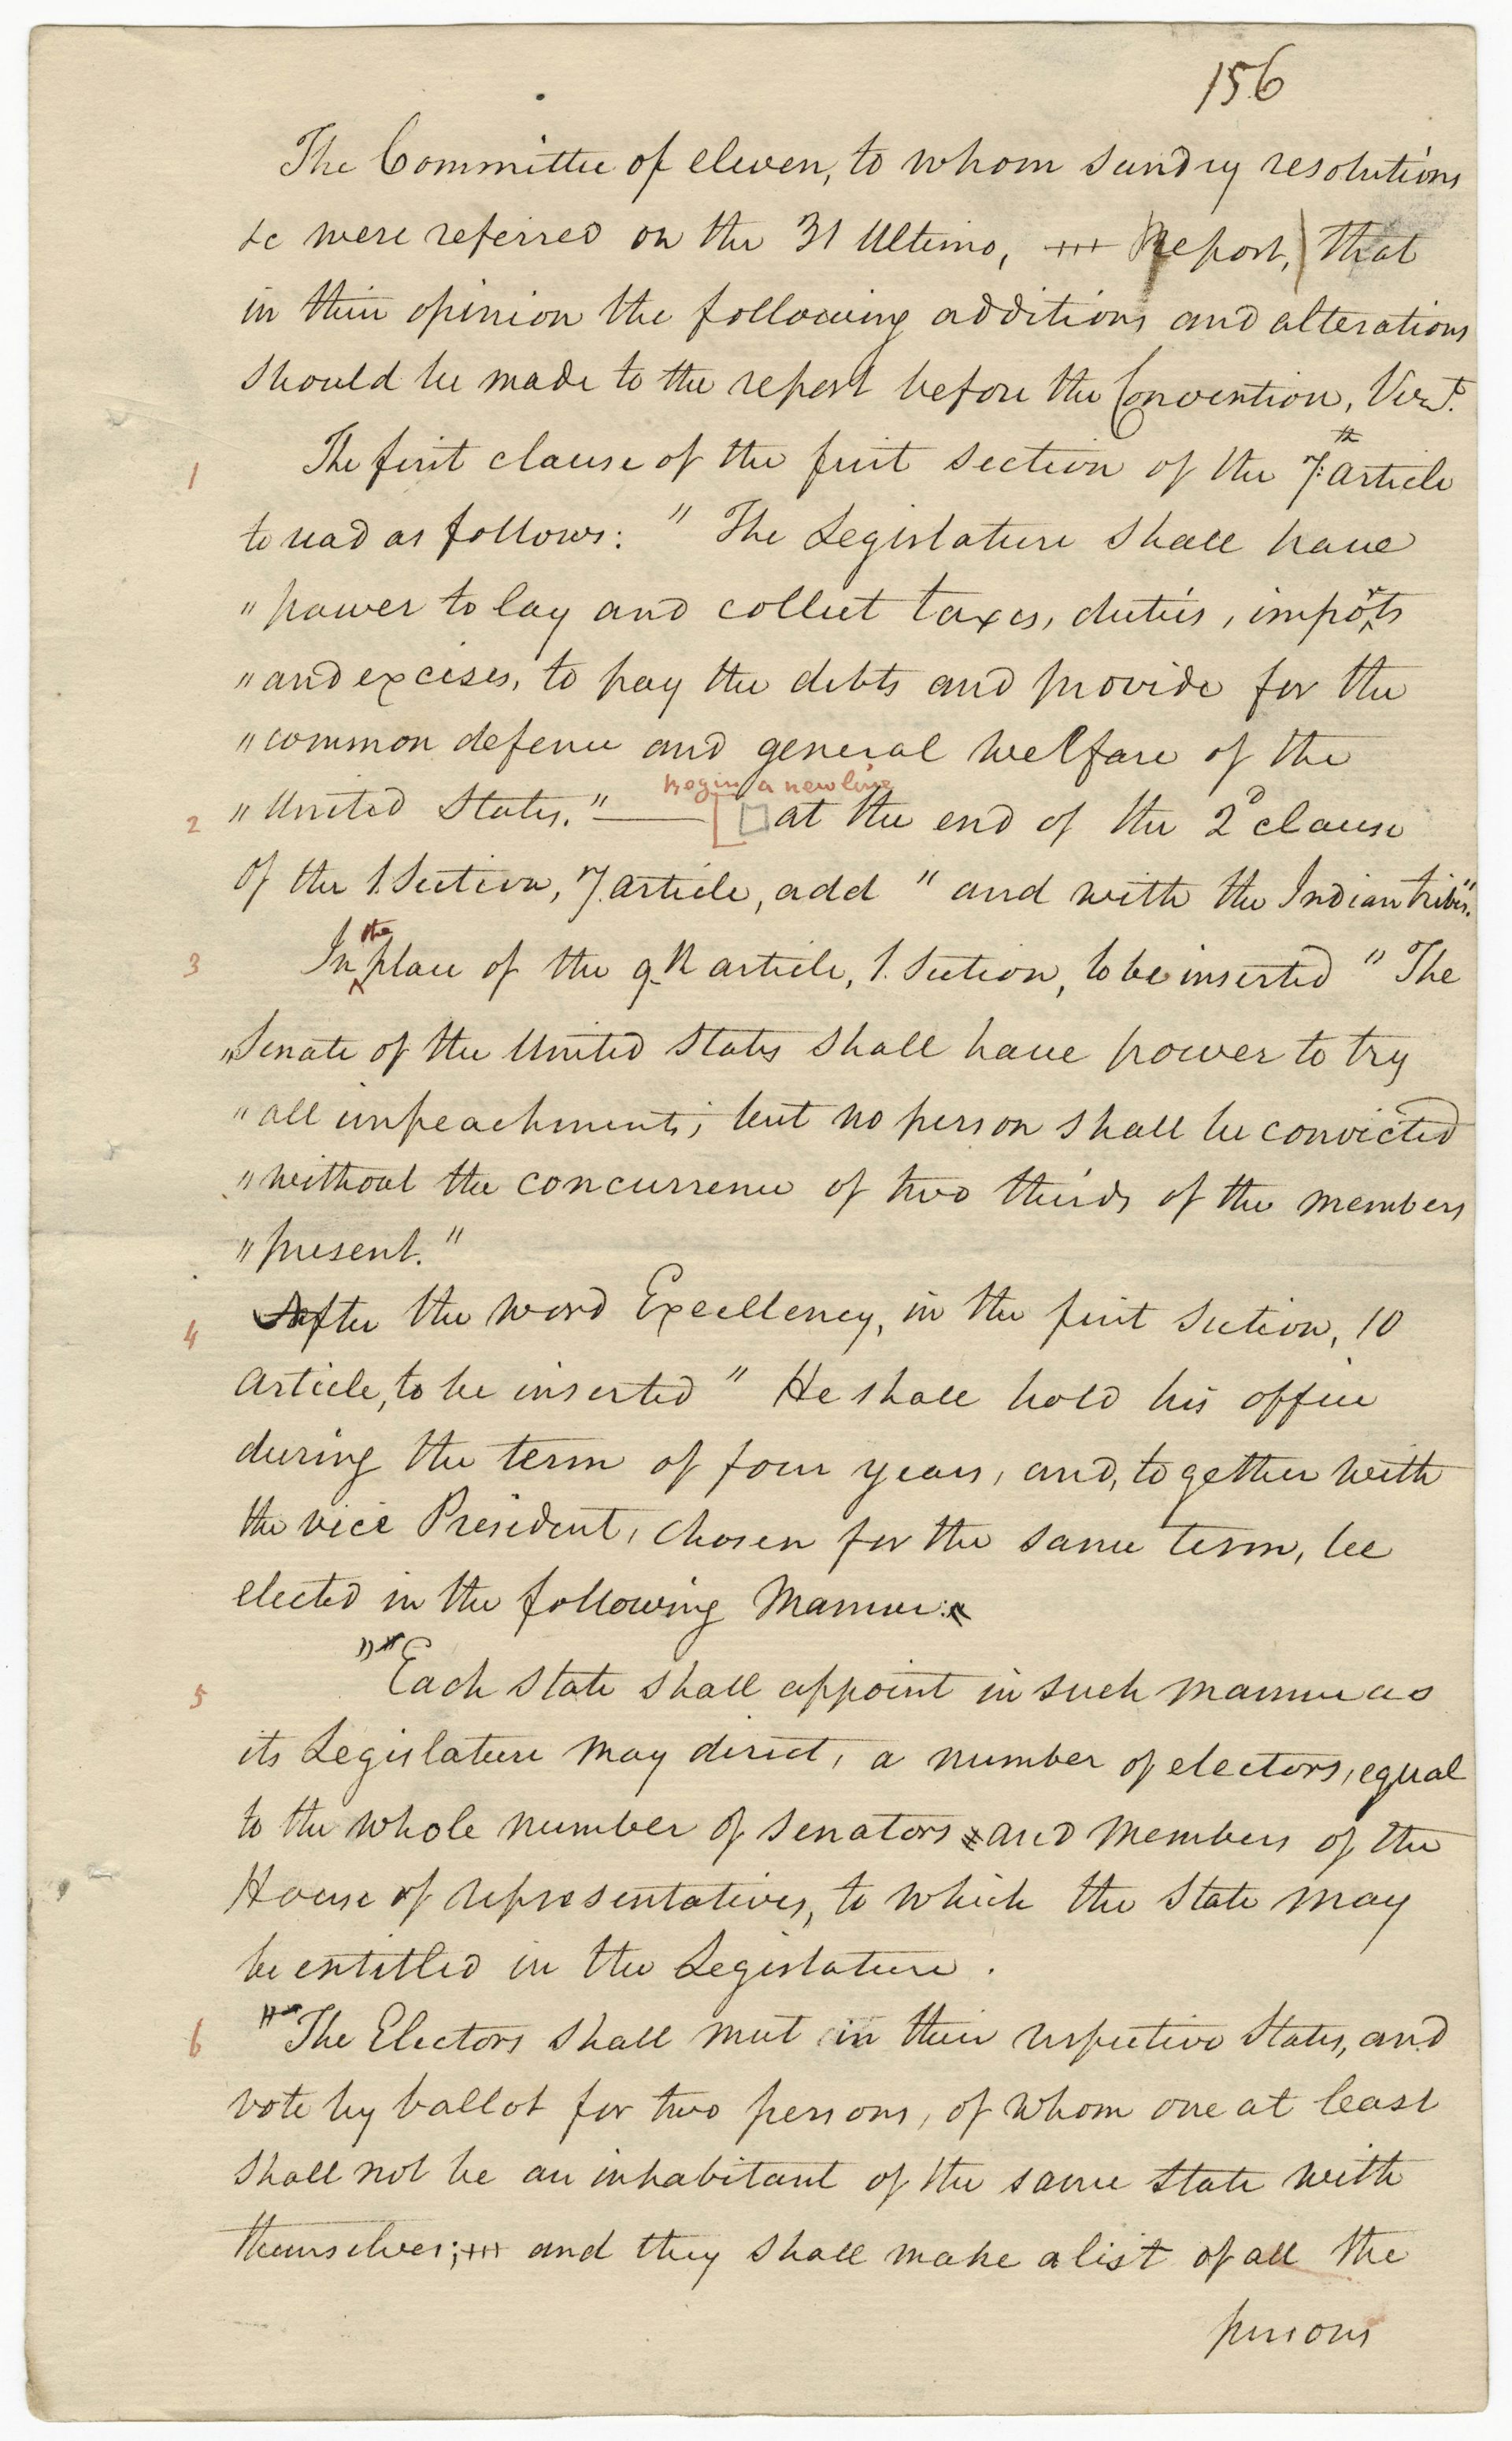 156
The Committee of eleven, to whom sundry resolutions
&c were referred on the 31 Ultimo, +++ Report, that
in their opinion the following additions and alterations
should be made to the report before the Convention, Vizt.
1 The first clause of the first section of the 7th article
to read as follows: " The Legislature shall have
" power to lay and collect taxes, duties, imposts
" and excises, to pay the debts and provide for the
" common defence and general welfare of the
begin a new line
2 " United States." —— [ at the end of the 2d clause
of the 1. Section, 7. article, add " and with the Indian tribes".
3 In the place of the 9th article, 1. Section, to be inserted " The
" Senate of the United States shall have power to try
" all impeachments; but no person shall be convicted
" without the concurrence of two thirds of the members
" present."
4 After the word Excellency, in the first Section, 10
article, to be inserted " He shall hold his office
during the term of four years, and, together with
the vice President, chosen for the same term, be
elected in the following Manner:
5 " Each State shall appoint in such manner as
its Legislature may direct, a number of electors, equal
to the whole number of senators and Members of the
House of representatives, to which the State may
be entitled in the Legislature.
6 " The Electors shall meet in their respective States, and
vote by ballot for two persons, of whom one at least
shall not be an inhabitant of the same State with
themselves; +++ and they shall make a list of all the
persons